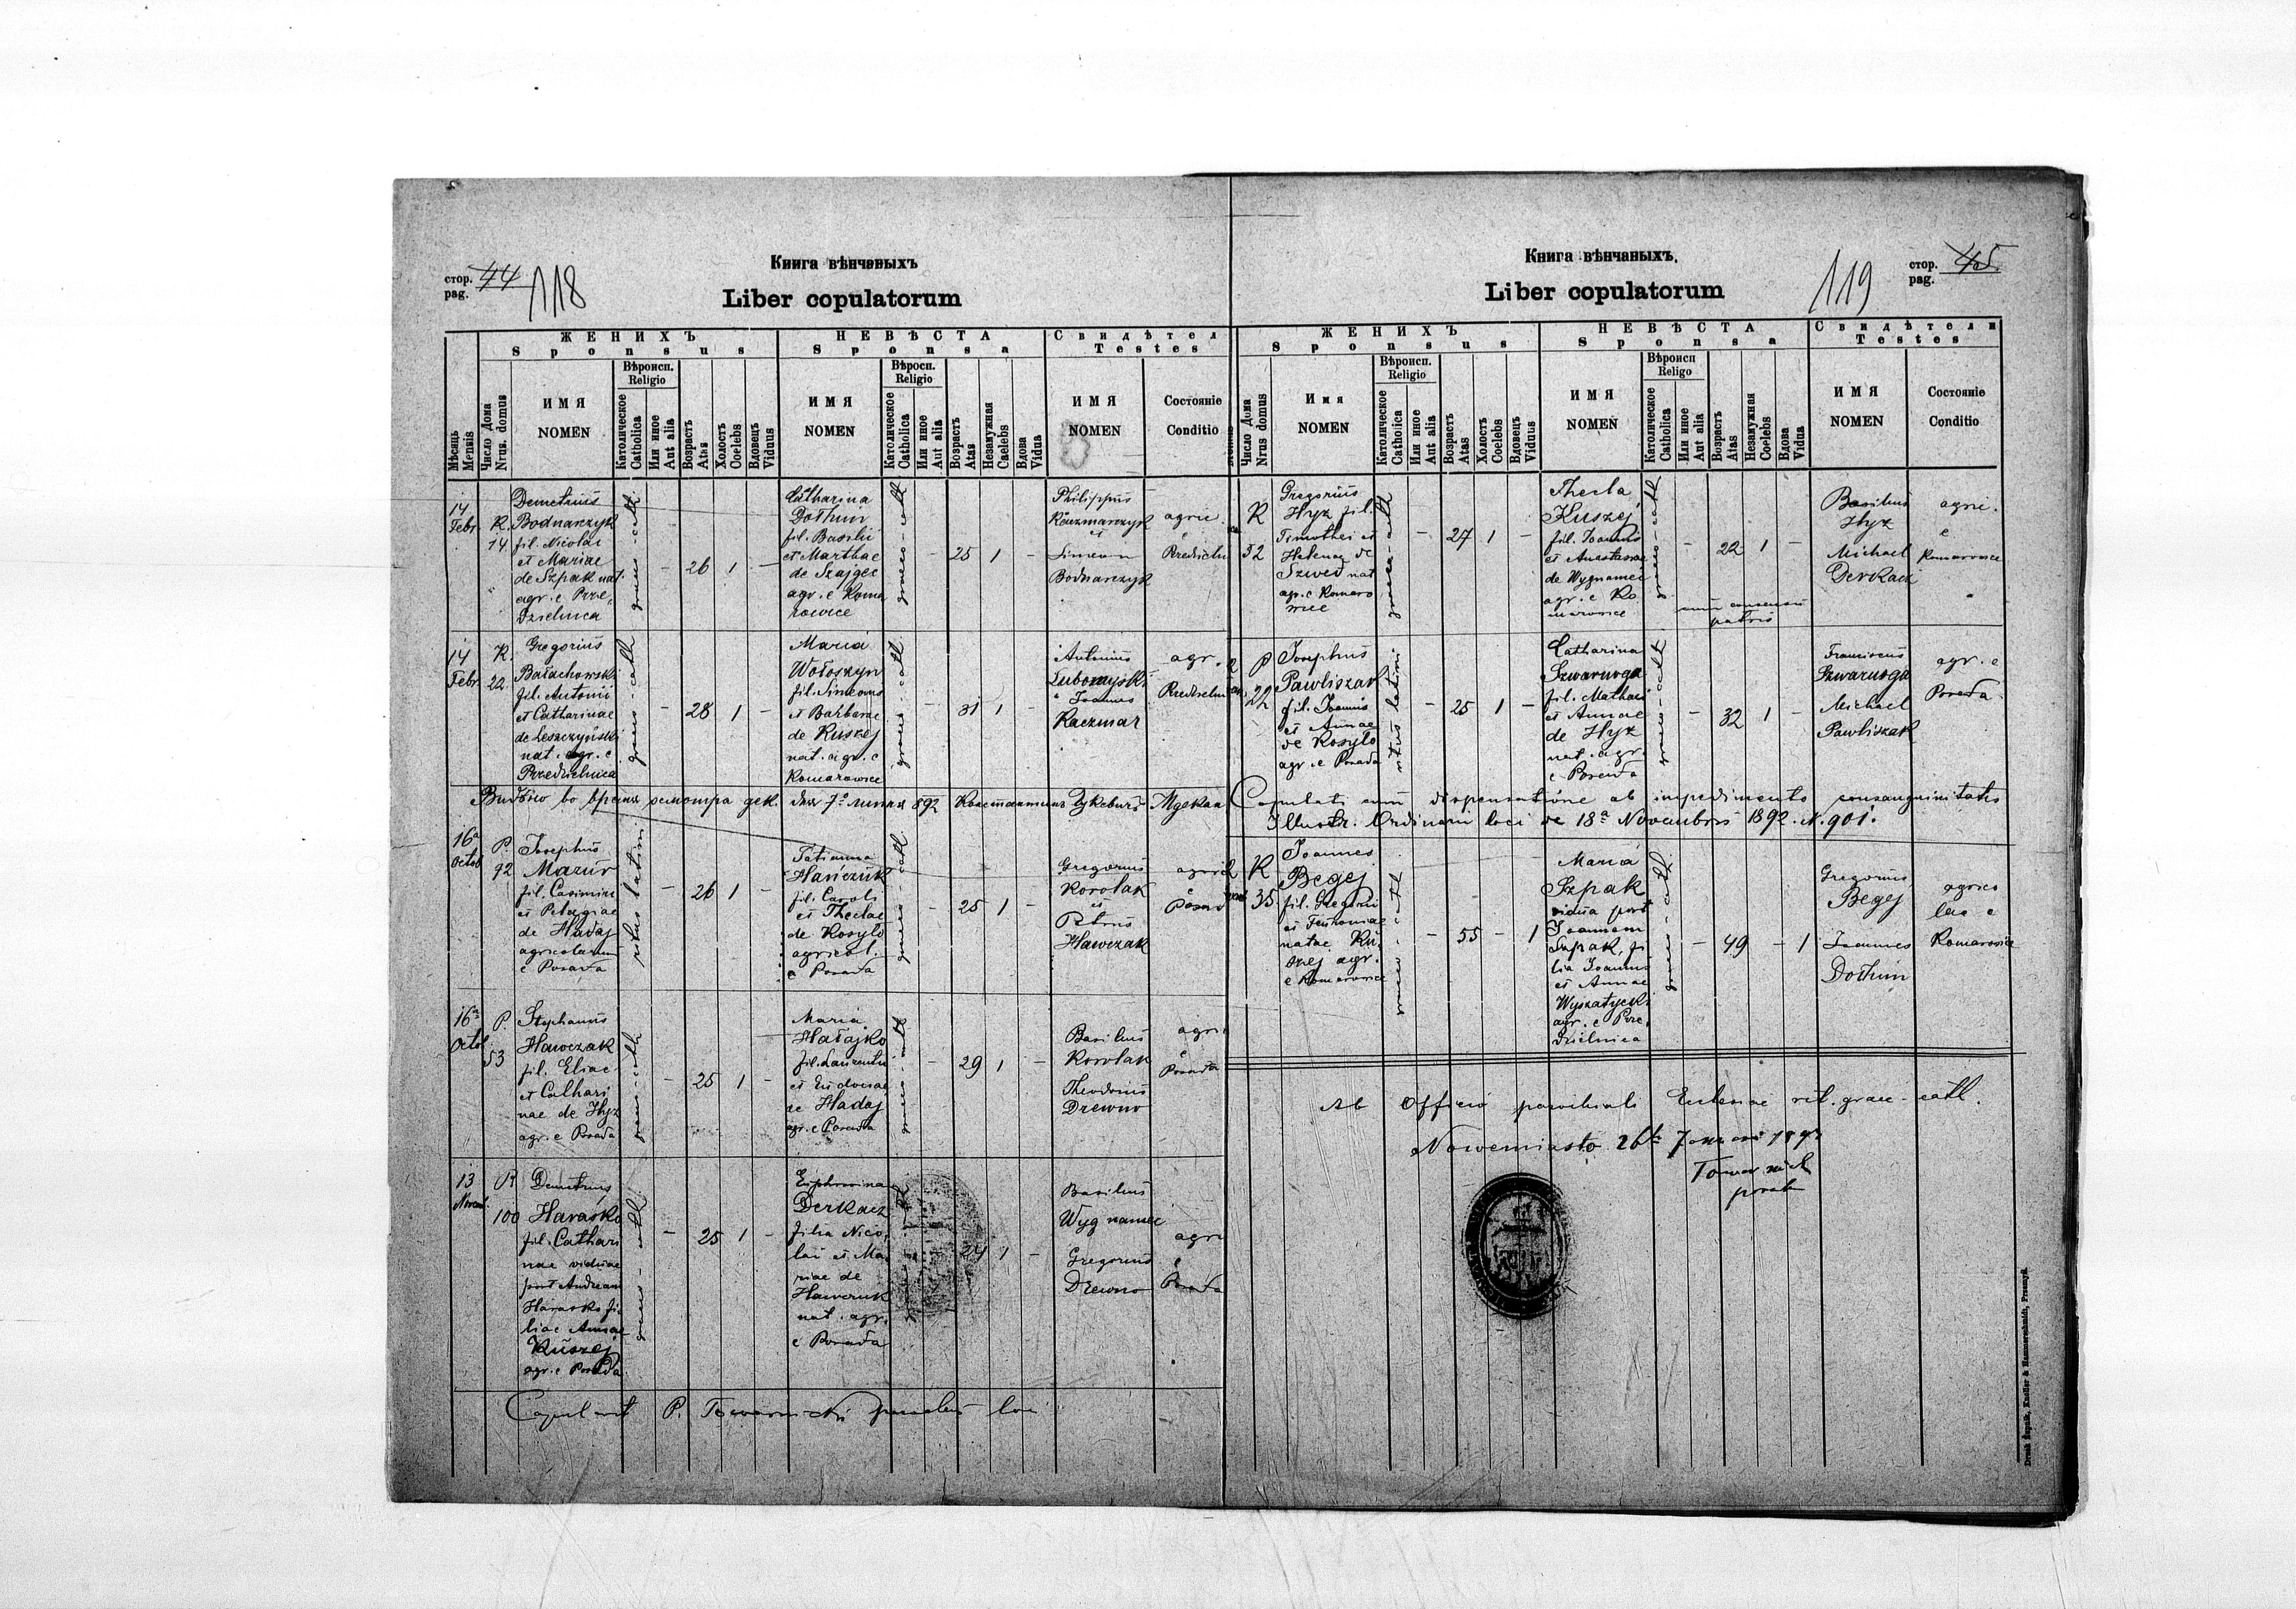 стор. 44
pag.
118
Книга вѣнчаныхъ
Liber copulatorum
ЖЕНИХЪ
Sponsus
НЕВѢСТА
Sponsa
Свидѣтел
Testes
Мѣсяць
Mensis
Число Дома
Nrus. domus
ИМЯ
NOMEN
Вѣроисп.
Religio
Католическое
Catholica
Или иное
Aut alia
Возрастъ
Atas
Холостъ
Coelebs
Вдовецъ
Viduus
ИМЯ
NOMEN
Вѣросп.
Religio
Католическое
Catholica
Или иное
Aut alia
Возрастъ
Atas
Незамужная
Caelebs
Вдова
Vidua
ИМЯ
NOMEN
Состояніе
Conditio
14
Febr.
K.
14
Demetrius
Bodnarczyk
fil. Nicolai
et Mariae
de Szpak nat.
agr. e Prze,
dzielnica
graeco-cath
-
26
1
-
Catharina
Dothin
fil. Basilii
et Marthae
de Szajgec
agr. e Koma
rowice
graeco-cath
-
25
1
-
Philippus
Kaczmarczyk
et
Simeon
Bodnarczyk
agric
e
Przedzieln
14
Febr.
K.
22
Gregorius
Bałachowski
fil. Antonii
et Catharinae
de Leszczyński
nat. agr. e
Przedzielnica
graeco-cath
-
28
1
-
Maria
Wołoszyn
fil. Simeonis
et Barbarae
de Kuszej
nat. agr. e
Komarowice
graeco-cath
-
31
1
-
Antonius
Lubomyski
Ioannes
Kaczmar
agr. e
Przedzielnica
Видѣно во время
дек. дня 7о липня 892
16a
Octob
P.
92
Josephus
Mazur
fil. Casimiri
et Pelagiae
de Hadaj
agricolarum
e Posada
ritus latini
-
26
1
-
Tatianna
Hawczuk
fil. Caroli
et Theclae
de Kosyło
agricol.
e Posada
graeco-cath
-
25
1
-
Gregorius
Korolak
et
Petrus
Hawczak
agricol
e
Posad
16a
Octob
P.
53
Stephanus
Hawczak
fil. Eliae
et Cathari
nae de Hyz
agr. e Posada
graeco-cath
-
25
1
-
Maria
Hałajko
fil. Laurentii
et Eudociae
de Hadaj
agr. e Posada
graeco-cath
-
29
1
-
Basilius
Korolak
Theodorus
Drewno
agri
e
Posada
13
Novemb
P.
100
Demetrius
Harasko
fil. Cathari
nae viduae
post Andream
Harasko fi
liae Annae
Kuszej
agr. e Posada
graeco-cath
-
25
1
-
Euphrosina
Derkacz
filia Nico,
lai et Ma,
riae de
Hawczuk
nat. agr.
e Posada
24
1
-
Basilius
Wygnaniec
Gregorius
Drewno
agri
e
Posada
Copulavit P. Towarnicki parochus loci
119
стор. 45
pag.
Книга вѣнчаныхъ.
Liber copulatorum
ЖЕНИХЪ
Sponsus
НЕВѢСТА
Sponsa
Свидѣтели
Testes
Число Дома
Nrus domus
Имя
NOMEN
Вѣроисп.
Religio
Католическое
Catholica
Или иное
Aut alia
Возрастъ
Atas
Холостъ
Coelebs
Вдовецъ
Viduus
ИМЯ
NOMEN
Вѣроисп
Religo
Католическое
Catholica
Или иное
Aut alia
Возрастъ
Atas
Незамужная
Coelebs
Вдова
Vidua
ИМЯ
NOMEN
Состояніе
Conditio
K
32
Gregorius
Hyz fil.
Timothei et
Helenae de
Szwed nat
agr. e Komaro
wice
graeco-cath
-
27
1
-
Thecla
Kuszej
fil. Ioannis
et Anastasiae
de Wygnaniec
agr. e Ko
marowice
graeco-cath
-
22
1
-
cum consensu
patris
Basilius
Hyz
Michael
Derkacz
agric.
e
Komarowice
P
22
Josephus
Pawliszak
fil. Ioannis
et Annae
de Kosyło
agr. e Posada
ritus latini
-
25
1
-
Catharina
Szwaruoga
fil. Mathaei
et Annae
de Hyz
nat. agr.
e Posada
graeco-cath
-
32
1
-
Franciscus
Szwaruoga
Michael
Pawliszak
agr. e
Posada
Copulati cum dispensatione ab impedimento consanguinitatis
Illustr. Ordinarii loci de 18a Novembris 1892. N. 901.
K
35
Ioannes
Begej
fil. Gregorii
et Feuroniae
natae Ku
szej agr.
e Komarowice
graeco-cath
-
55
-
1
Maria
Szpak
vidua post
Ioannem
Szpak, fi
lia Ioannis
et Annae
Wyszatycki
agr. e Prze,
dzielnica
graeco-cath
-
49
-
1
Gregorius
Begej
Ioannes
Dothin
agrico
lae e
Komarowice
Ab Officio parochiali Ecclesiae rit. graec-cath.
Nowemiasto 26ta Januari 1893
Towarnicki
paroch
Druk Żupnik, Knoller & Hammerschmidt, Przemyśl.